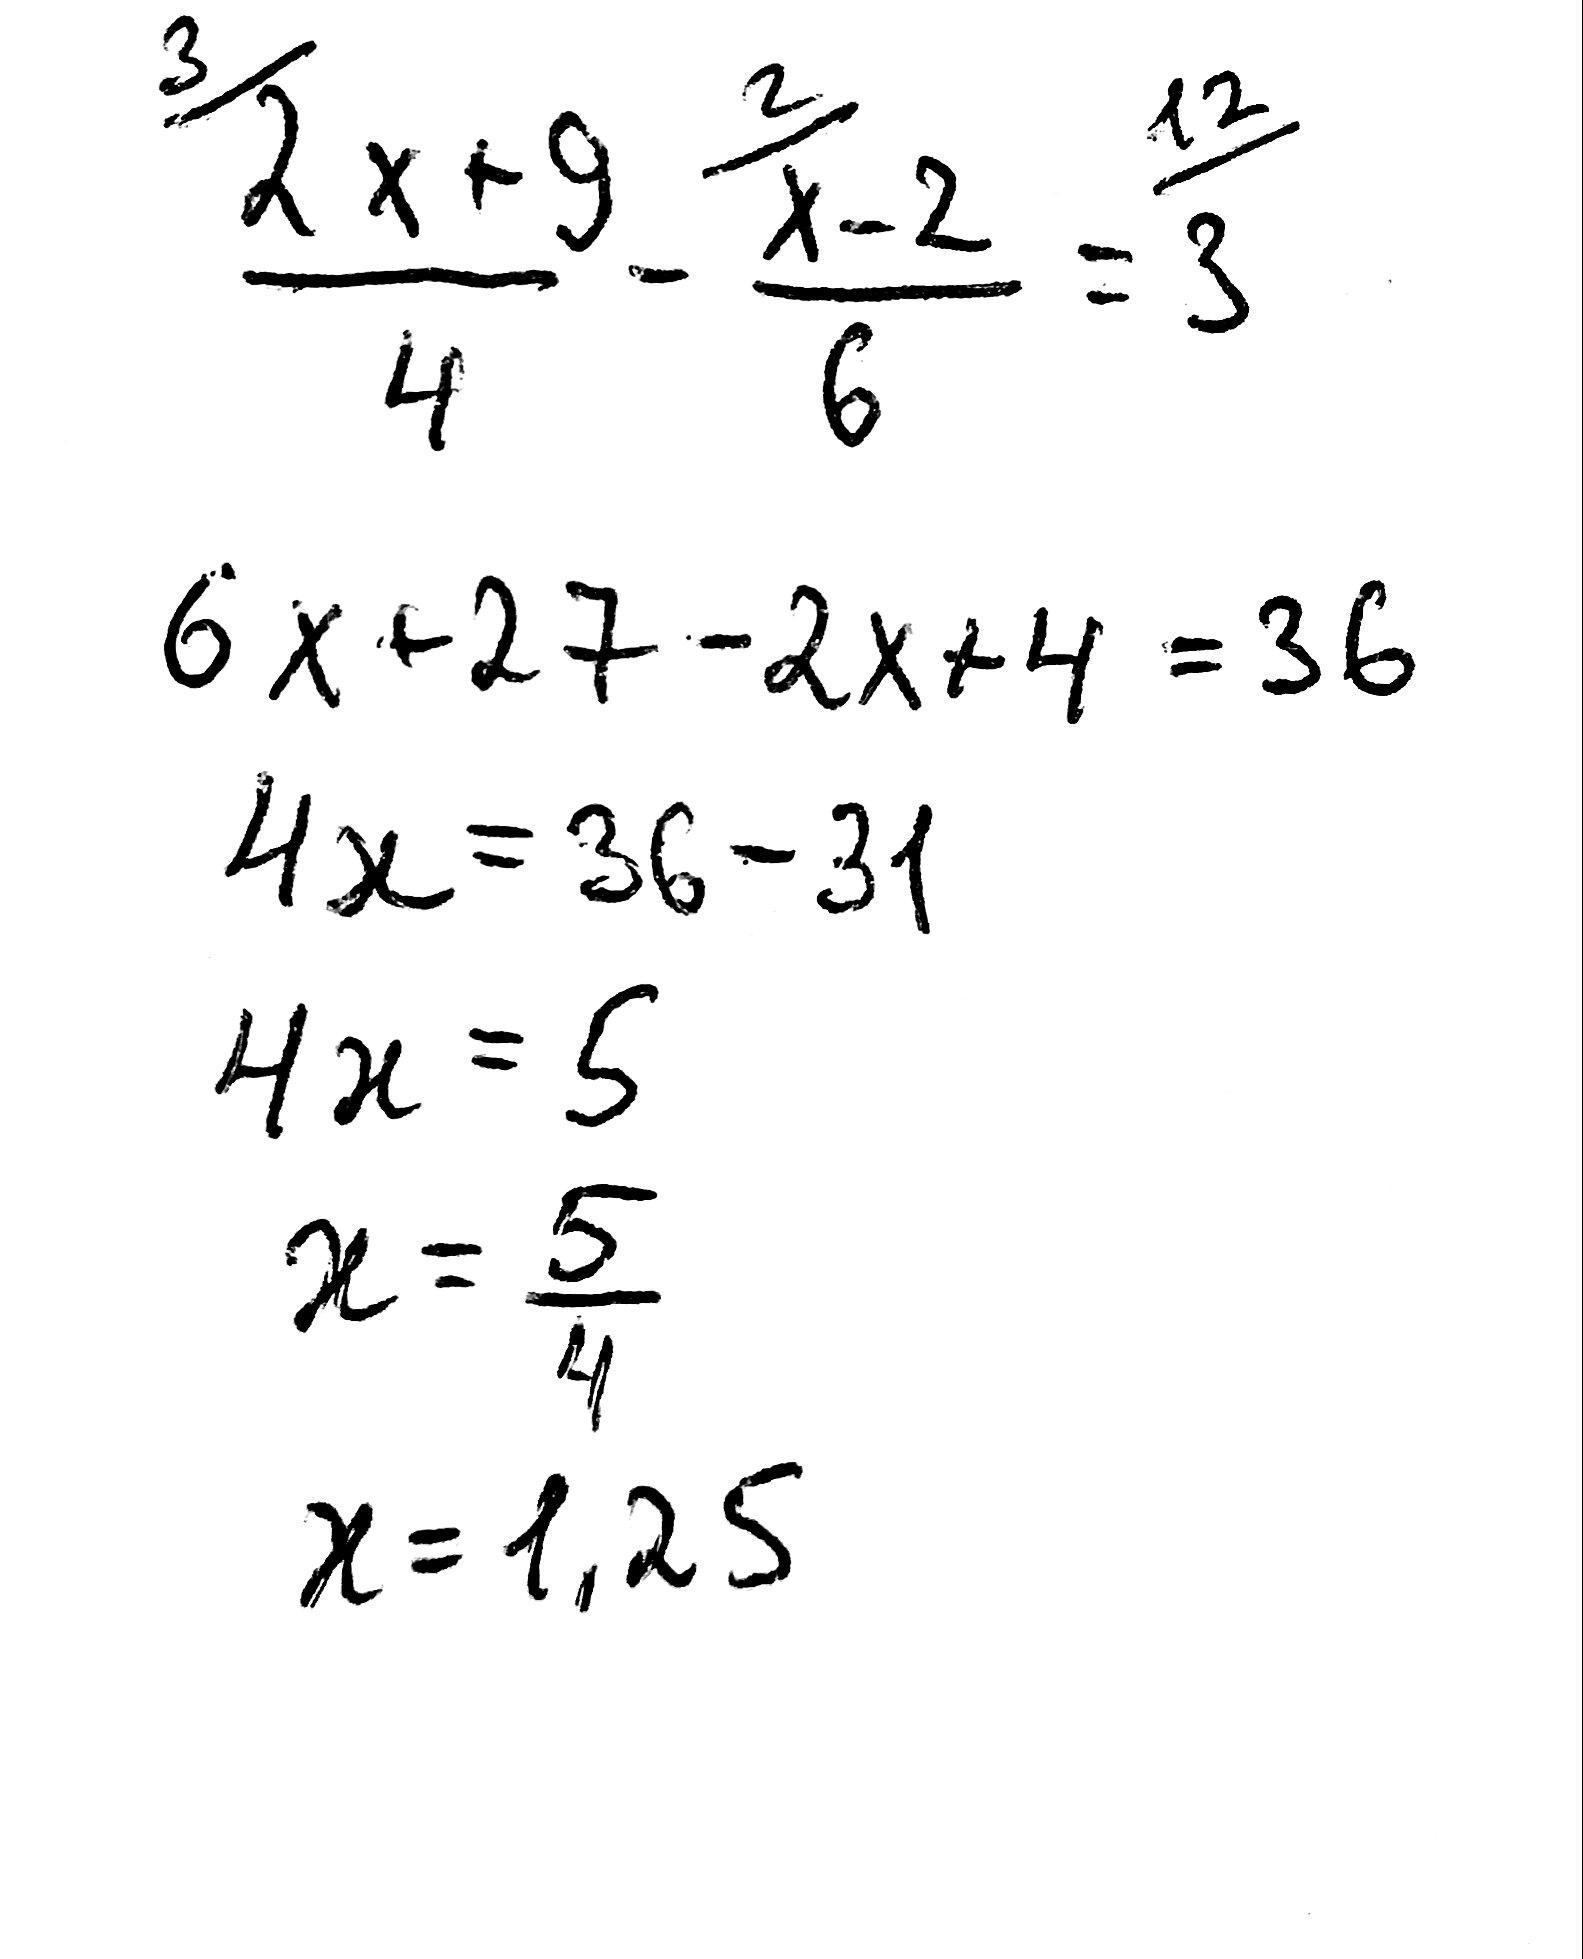 3/ 2x+9 / 4 - 2/ x-2 / 6 = 12/ 3
6x+27-2x+4=36
4x=36-31
4x=5
x=5/4
x=1,25